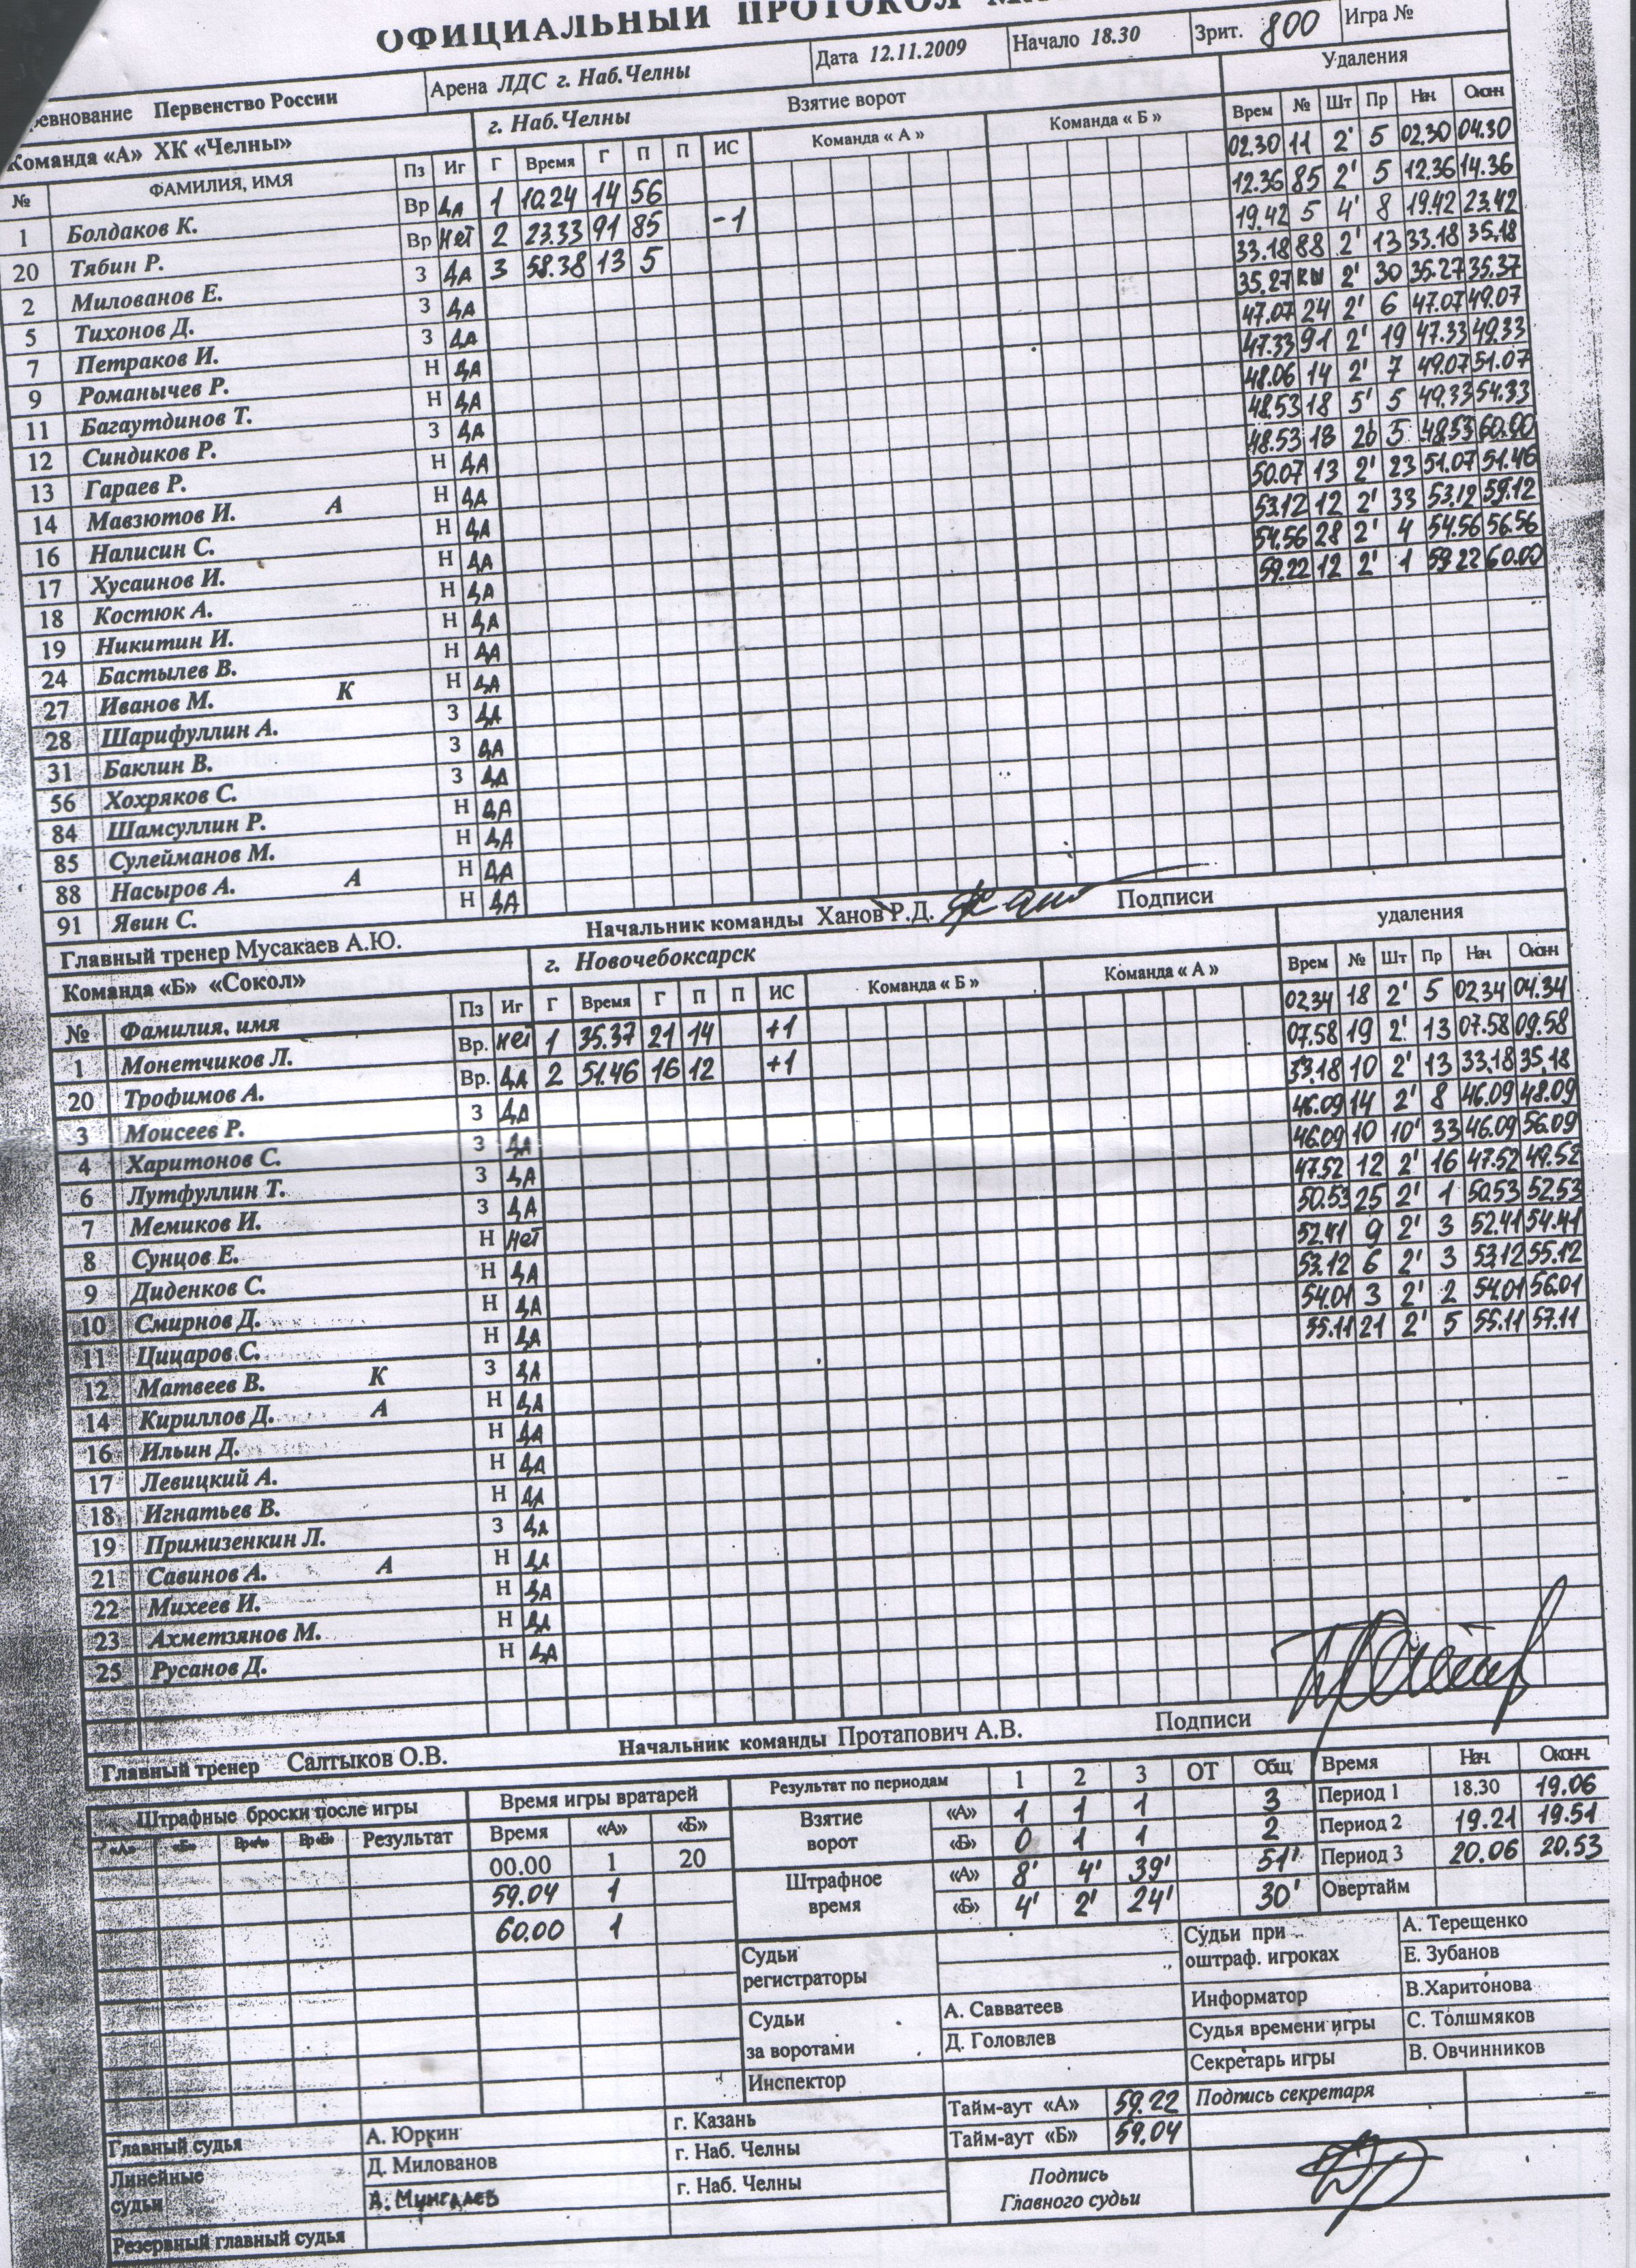 ОФИЦИАЛЬНЫЙ ПРОТОКОЛ
Первенство России Арена ЛДС г. Наб.Челны Дата 12.11.2009 Начало 18.30 Зрит. 800 Игра №
Команда «А» ХК «Челны» г. Наб.Челны Взятие ворот Удаления
№ ФАМИЛИЯ, ИМЯ Пз Иг Г Время Г П П ИС Команда « А » Команда « Б » Врем № Шт Пр Нач. Оконч.
1 Болдаков К. Вр ДА 1 10.24 14 56 02.30 11 2' 5 02.30 04.30
20 Тябин Р. Вр Нет 2 23.33 91 85 -1 12.36 85 2' 5 12.36 14.36
2 Милованов Е. З ДА 3 58.38 13 5 19.42 5 4' 8 19.42 23.42
5 Тихонов Д. З ДА 33.18 88 2' 13 33.18 35.18
7 Петраков И. З ДА 35.27 КШ 2' 30 35.27 35.37
9 Романычев Р. Н ДА 47.07 24 2' 6 47.07 49.07
11 Багаутдинов Т. Н ДА 47.33 91 2' 19 47.33 49.33
12 Синдиков Р. З ДА 48.06 14 2' 7 49.07 51.07
13 Гараев Р. Н ДА 48.53 18 5' 5 49.33 54.33
14 Мавзютов И. А Н ДА 48.53 18 20 5 48.53 60.00
16 Налисин С. Н ДА 50.07 13 2' 23 51.07 51.46
17 Хусаинов И. Н ДА 53.12 12 2' 33 53.12 59.12
18 Костюк А. Н ДА 54.56 28 2' 4 54.56 56.56
19 Никитин И. Н ДА 59.22 12 2' 1 59.22 60.00
24 Бастылев В. Н ДА
27 Иванов М. К Н ДА
28 Шарифуллин А. З ДА
31 Баклин В. З ДА
56 Хохряков С. З ДА
84 Шамсуллин Р. Н ДА
85 Сулейманов М. Н ДА
88 Насыров А. А Н ДА
91 Явин С. Н ДА
Главный тренер Мусакаев А.Ю. Начальник команды Ханов Р.Д. Подписи
Команда «Б» «Сокол» г. Новочебоксарск удаления
№ Фамилия, имя Пз Иг Г Время Г П П ИС Команда « Б » Команда « А » Врем № Шт Пр Нач. Оконч
1 Монетчиков Л. Вр. нет 1 35.37 21 14 +1 02.34 18 2' 5 02.34 04.34
20 Трофимов А. Вр. ДА 2 51.46 16 12 +1 07.58 19 2' 13 07.58 09.58
3 Моисеев Р. З ДА 33.18 10 2' 13 33.18 35.18
4 Харитонов С. З ДА 46.09 14 2' 8 46.09 48.09
6 Лутфуллин Т. З ДА 46.09 10 10' 33 46.09 56.09
7 Мемиков И. З ДА 47.52 12 2' 16 47.52 49.52
8 Сунцов Е. Н Нет 50.53 25 2' 1 50.53 52.53
9 Диденков С. Н ДА 52.41 9 2' 3 52.41 54.41
10 Смирнов Д. Н ДА 53.12 6 2' 3 53.12 55.12
11 Цицаров С. Н ДА 54.01 3 2' 2 54.01 56.01
12 Матвеев В. К З ДА 55.11 21 2' 5 55.11 57.11
14 Кириллов Д. А Н ДА
16 Ильин Д. Н ДА
17 Левицкий А. Н ДА
18 Игнатьев В. Н ДА
19 Примизенкин Л. З ДА
21 Савинов А. А Н ДА
22 Михеев И. Н ДА
23 Ахметзянов М. Н ДА
25 Русанов Д. Н ДА
Главный тренер Салтыков О.В. Начальник команды Протапович А.В. Подписи
Штрафные броски после игры Время игры вратарей Результат по периодам 1 2 3 ОТ Общ Время Нач. Оконч.
«А» «Б» Вр«А» Вр«Б» Результат Время «А» «Б» Взятие ворот «А» 1 1 1 3 Период 1 18.30 19.06
00.00 1 20 «Б» 0 1 1 2 Период 2 19.21 19.51
59.04 1 Штрафное время «А» 8' 4' 39' 51' Период 3 20.06 20.53
60.00 1 «Б» 4' 2' 24' 30' Овертайм
Судьи регистраторы Судьи при оштраф. игроках А. Терещенко
Е. Зубанов
Судьи за воротами А. Савватеев Информатор В.Харитонова
Д. Головлев Судья времени игры С. Толшмяков
Инспектор Секретарь игры В. Овчинников
Тайм-аут «А» 59.22 Подпись секретаря
Главный судья А. Юркин г. Казань Тайм-аут «Б» 59.04
Линейные судьи Д. Милованов г. Наб. Челны Подпись Главного судьи
А. Мингалев г. Наб. Челны
Резервный главный судья